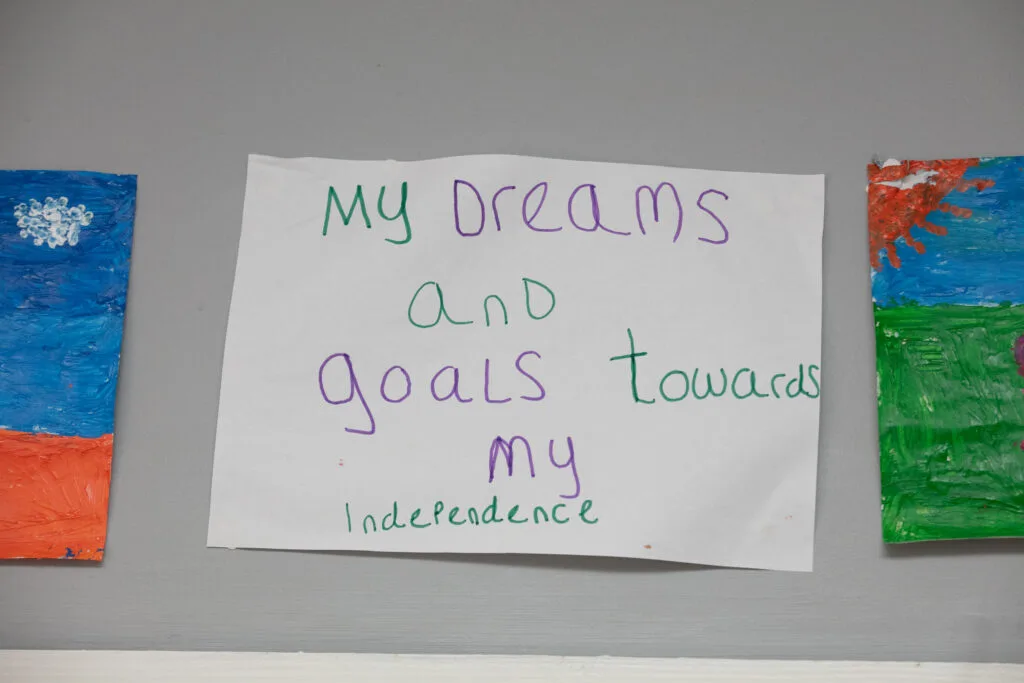 My Dreams
anD
goaLS towards
my
Independence